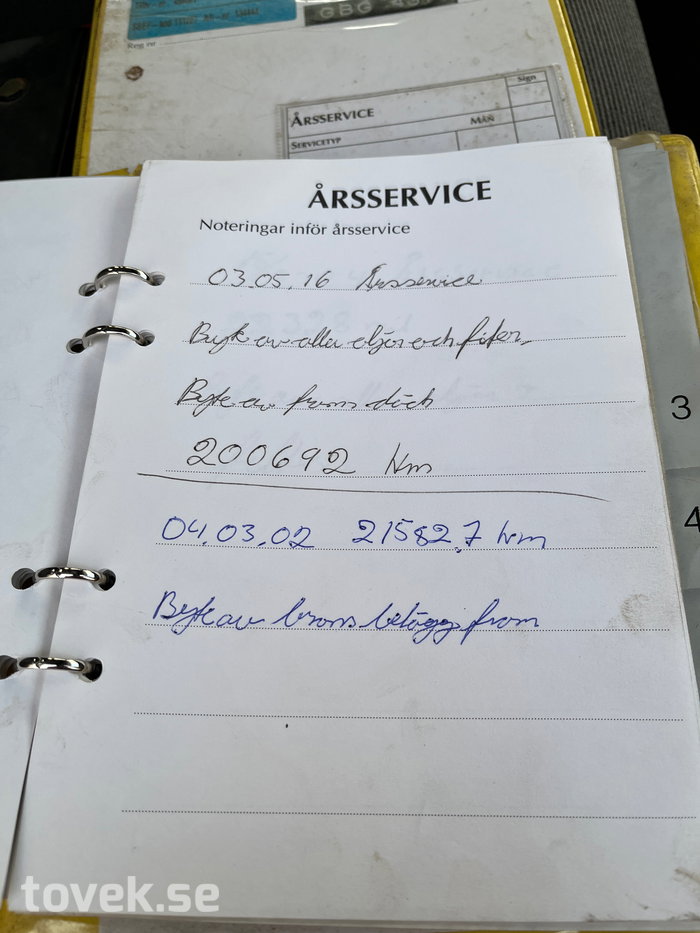 Reg nr
GBG
Sign
ÅRSSERVICE
MÅN
SERVICETYP
ÅRSSERVICE
Noteringar inför årsservice
03.05.16 Årsservice
Byk av alla oljor och filer
Byte av fram däck
3
200692 km
4
04.03.02 21582,7 km
Byte av broms belägg fram
tovek.se